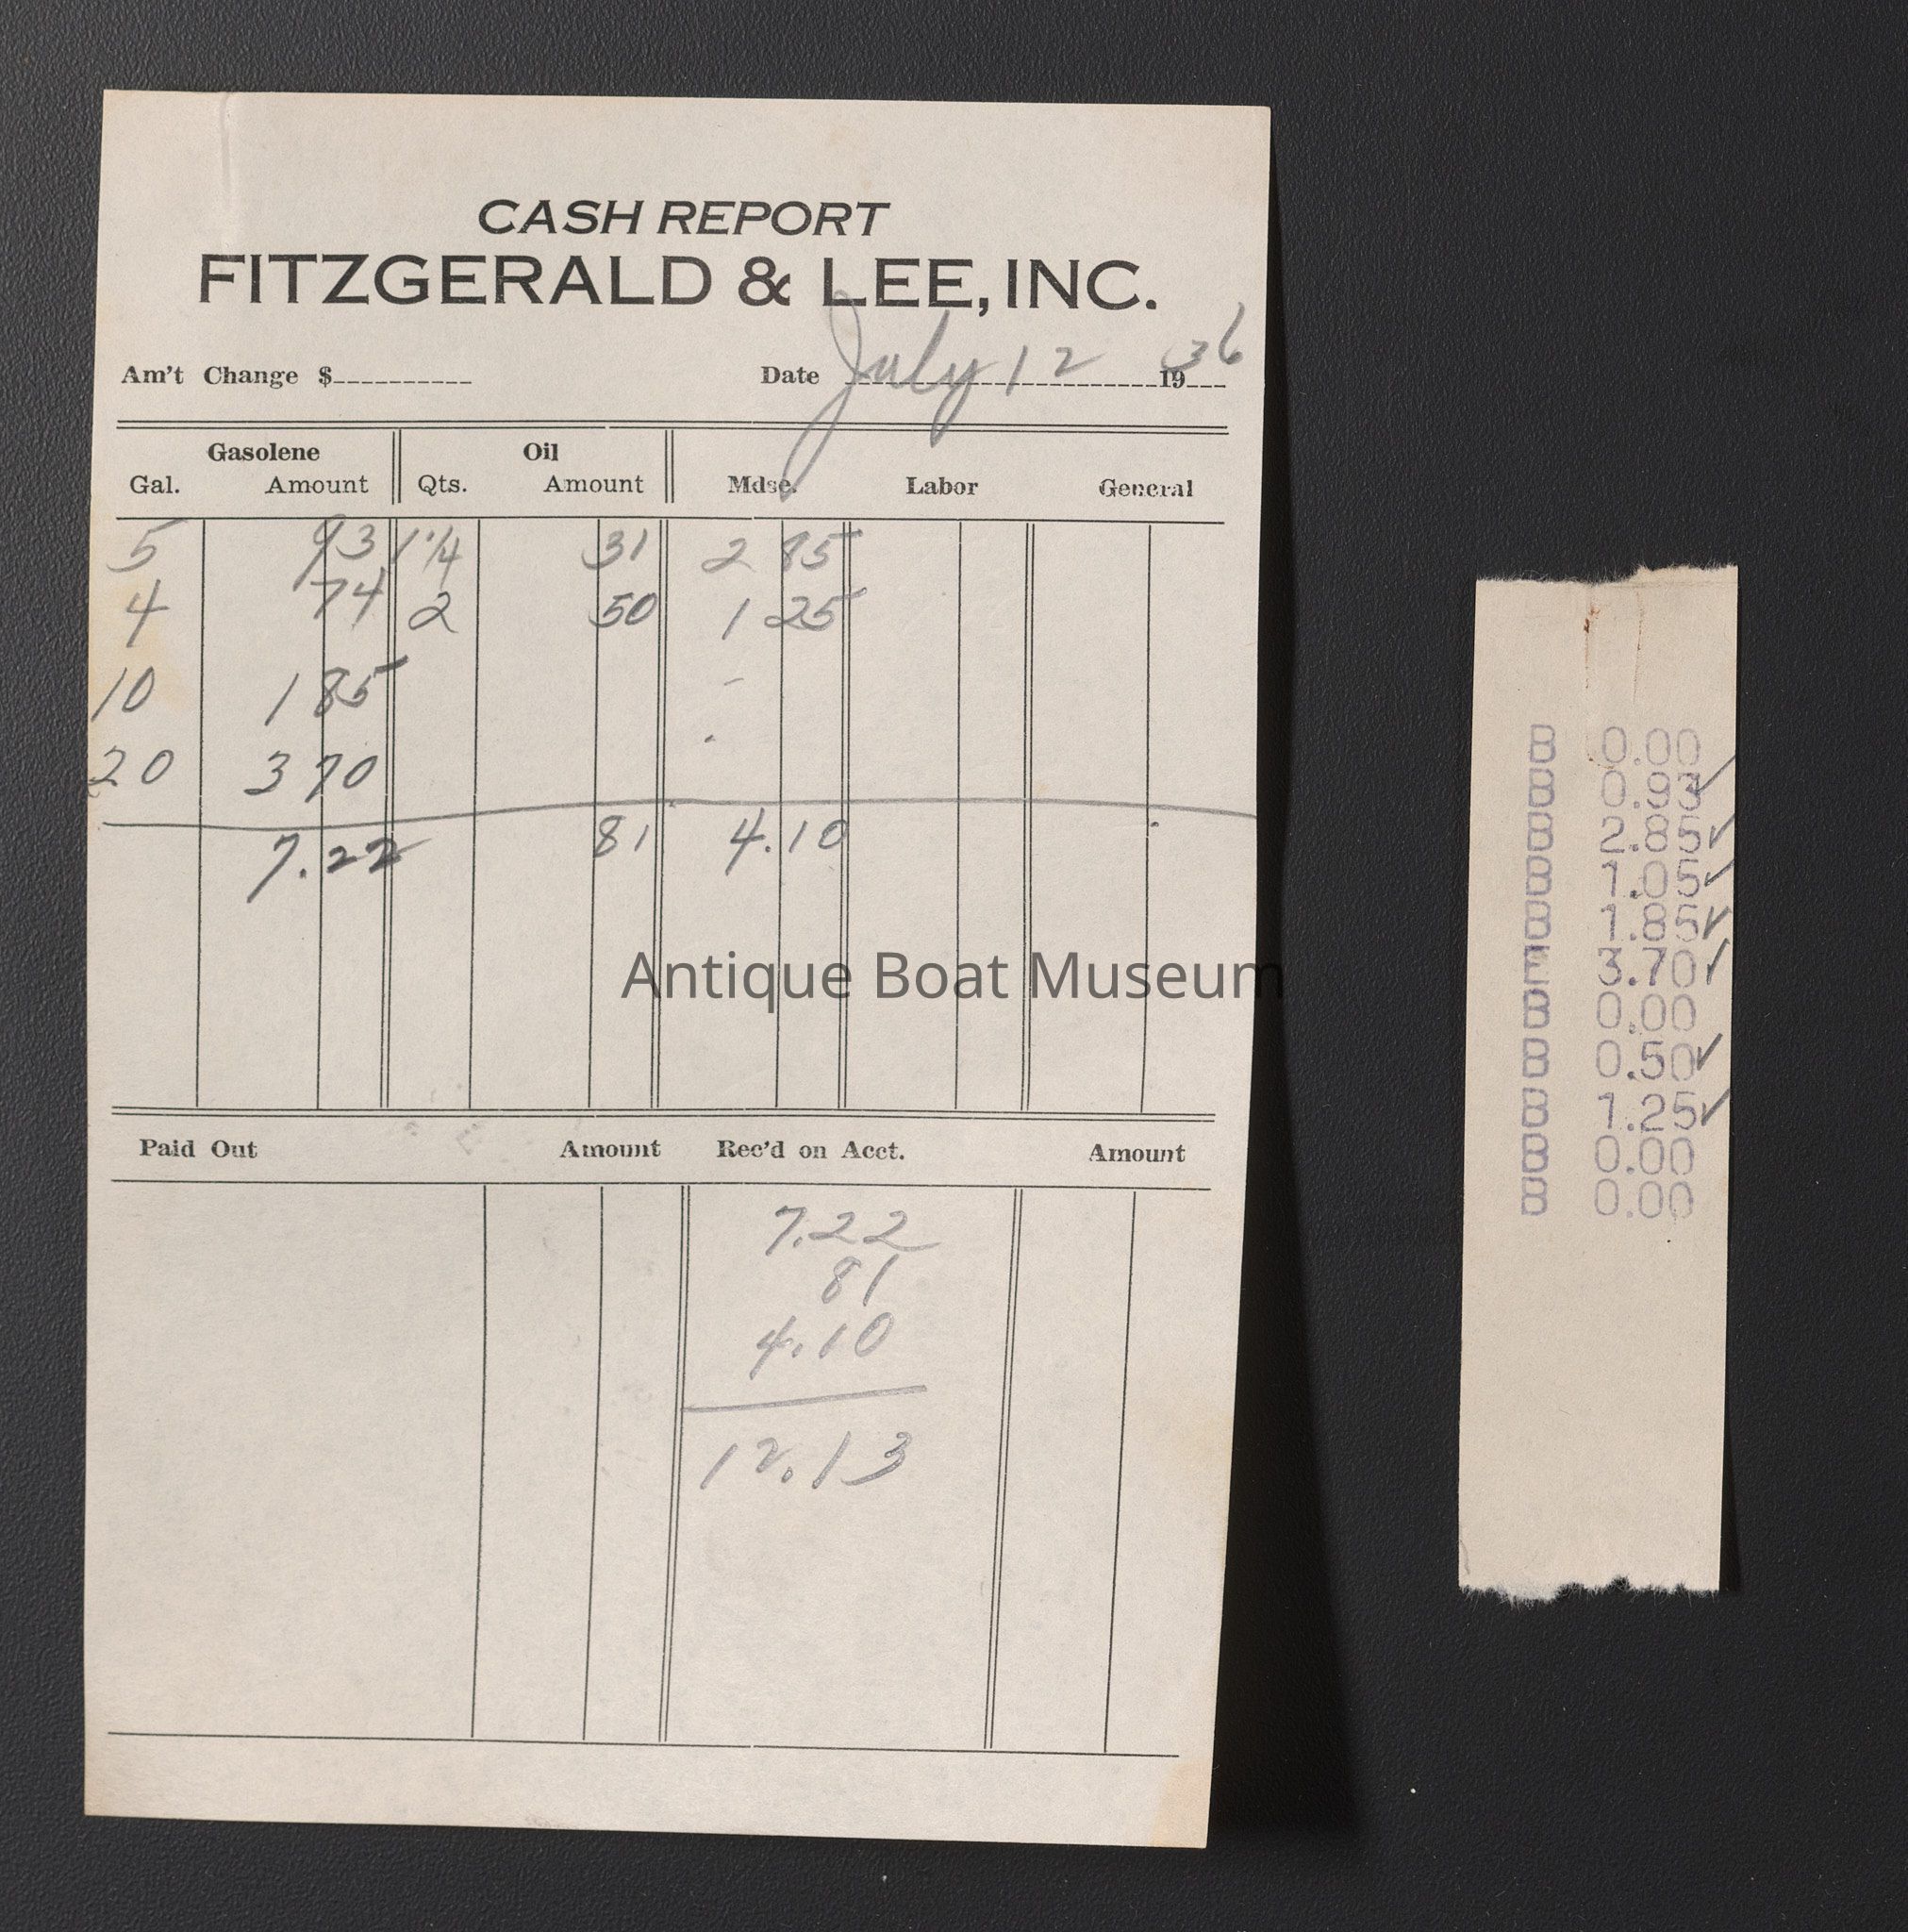 CASH REPORT
FITZGERALD & LEE, INC.
Am't Change $ Date July 12 1936
Gasolene Oil
Gal. Amount Qts. Amount Mdse. Labor General
5 93 1 1/4 31 2 85
4 74 2 50 1 25
10 1 85
20 3 70
7.22 81 4.10
Antique Boat Museum
Paid Out Amount Rec'd on Acct. Amount
7.22
81
4.10
12.13
B 0.00
B 0.93 ✓
B 2.85 ✓
B 1.05 ✓
B 1.85 ✓
E 3.70 ✓
B 0.00
B 0.50 ✓
B 1.25 ✓
B 0.00
B 0.00